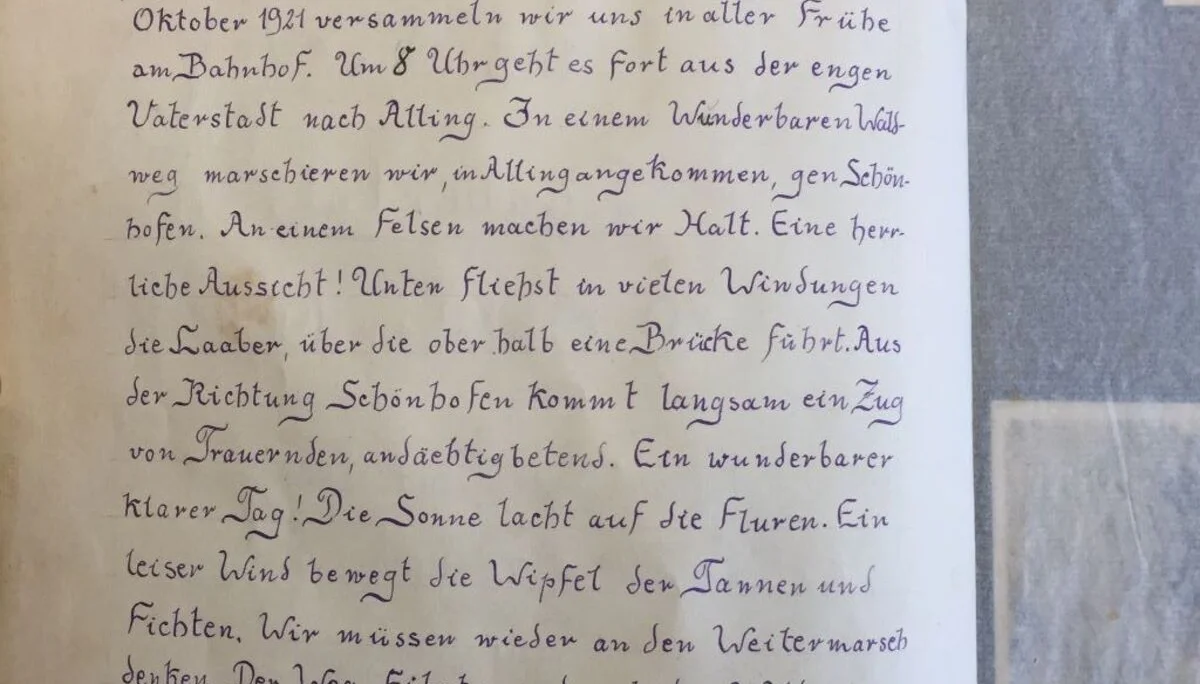 Oktober 1921 versammeln wir uns in aller Frühe
am Bahnhof. Um 8 Uhr geht es fort aus der engen
Vaterstadt nach Alling. In einem Wunderbaren Wald-
weg marschieren wir, in Alling angekommen, gen Schön-
hofen. An einem Felsen machen wir Halt. Eine herr-
liche Aussicht! Unten fließt in vielen Windungen
die Laaber, über die oberhalb eine Brücke führt. Aus
der Richtung Schönhofen kommt langsam ein Zug
von Trauernden, andächtig betend. Ein wunderbarer
klarer Tag! Die Sonne lacht auf die Fluren. Ein
leiser Wind bewegt die Wipfel der Tannen und
Fichten. Wir müssen wieder an den Weitermarsch
denken. Der Weg